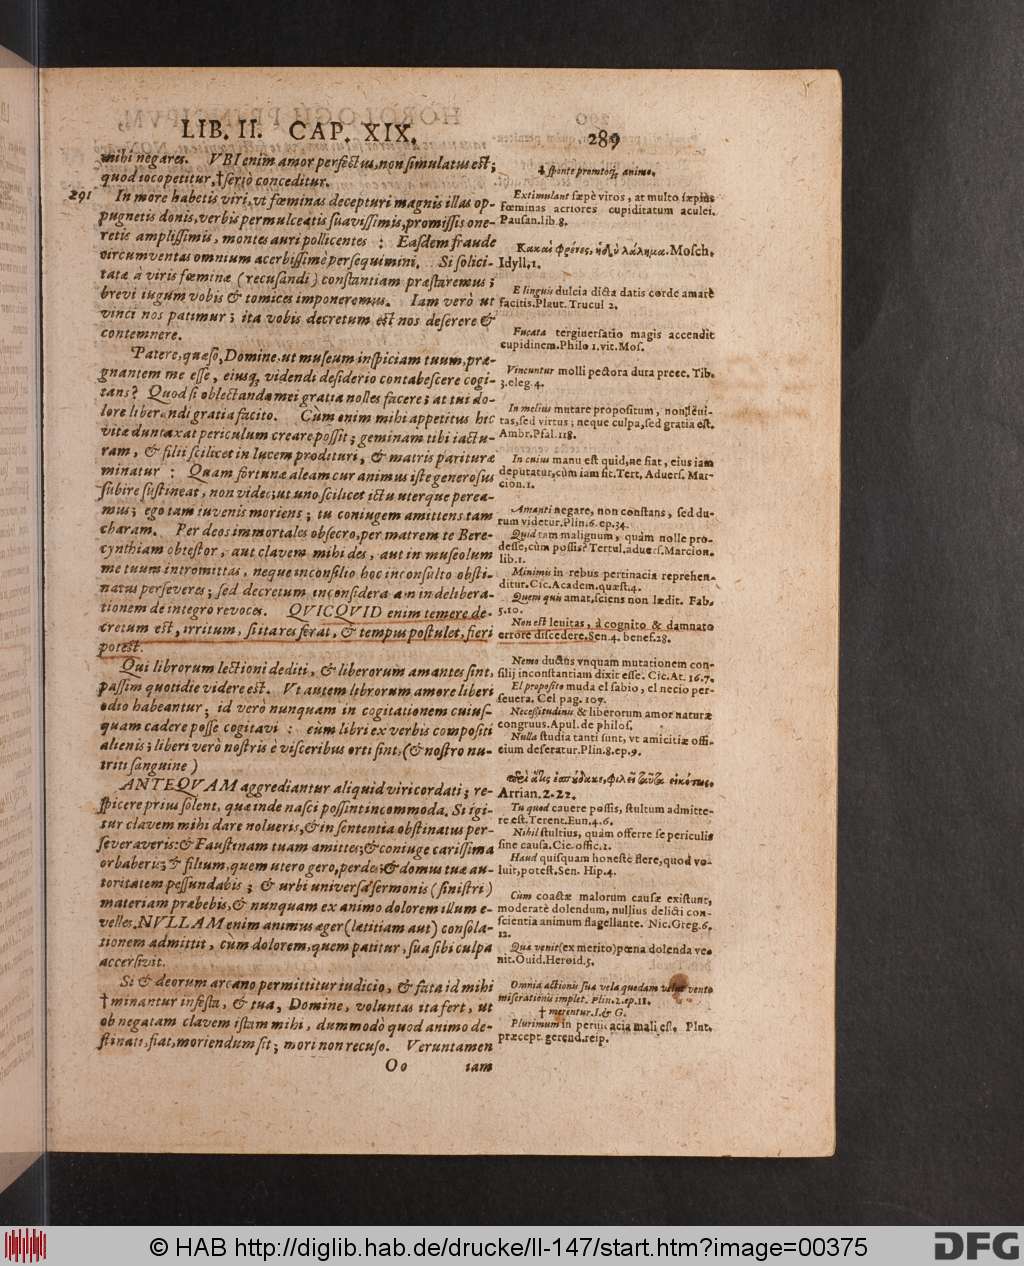 LIB. II. CAP. XIX. 289
mihi negares. VBI enim amor perfectus, non simulatus est;
quod ioco petitur, †seriò conceditur.
291 In more habetis viri, vt fœminas decepturi magnis illas op-
pugnetis donis, verbis permulceatis suavissimis, promissis one-
retis amplissimis, montes auri pollicentes : Easdem fraude
circumventas omnium acerbissimè persequimini. Si solici-
tatæ à viris fœminæ (recusandi) constantiam præstaremus;
brevi iugum vobis & tomices imponeremus. Iam verò ut
vinci nos patimur; ita vobis decretum est nos deserere &
contemnere.
Patere, quæso, Domine, ut museum inspiciam tuum, præ-
gnantem me esse, eiusq; videndi desiderio contabescere cogi-
tans? Quod si oblectandæ mei gratia nolles facere; at tui do-
lore liberandi gratia facito. Cùm enim mihi appetitus hic
vitæ duntaxat periculum creare possit; geminam tibi iactu-
ram, & filii scilicet in lucem prodituri, & matris parituræ
minatur : Quam fortunæ aleam cur animus iste generosus
subire sustineat, non video; ut uno scilicet ictu uterque perea-
mus; ego tam iuvenis moriens; tu coniugem amittens tam
charam. Per deos immortales obsecro, per matrem te Bere-
cynthiam obtestor, aut clavem mihi des, aut in museolum
me tuum intromittas, neque in consilio hoc inconsulto obsti-
natus perseveres; sed decretum inconsideratam in delibera-
tionem de integro revoces. QVICQVID enim temere de-
cretum est, irritum, si ita res ferat, & tempus postulet, fieri
potest.
Qui librorum lectioni dediti, & liberorum amantes sint,
passim quotidie videre est. Vt autem librorum amore liberi
odio habeantur; id verò nunquam in cogitationem cuius-
quam cadere posse cogitavi : cùm libri ex verbis compositi
alienis; liberi verò nostris è visceribus orti sint, (& nostro nu-
triti sanguine)
ANTEQVAM aggrediantur aliquid viri cordati; re-
spicere prius solent, quæ inde nasci possint incommoda. Si igi-
tur clavem mihi dare nolueris, & in sententia obstinatus per-
severaveris: & Faustinam tuam amittes; & coniuge carissima
orbaberis; & filium, quem utero gero, perdes; & domus tuæ au-
toritatem pessundabis; & urbi universæ sermonis (sinistri)
materiam præbebis, & nunquam ex animo dolorem illum e-
velles. NVLLAM enim animus æger (lætitiam aut) consola-
tionem admittit, cum dolorem, quem patitur, sua sibi culpa
accersivit.
Si & deorum arcano permittitur iudicio, & fata id mihi
†minantur infesta, & tua, Domine, voluntas ita fert, ut
ob negatam clavem istam mihi, dummodò quod animo de-
stinasti, fiat, moriendum sit; mori non recuso. Veruntamen
Oo iam
† sponte promtoq; animo.
Extimulant sæpè viros, at multo sæpius
fœminas acriores cupiditatum aculei.
Pausan. lib. 8.
Κακαὶ φρένες, ἡδὺ λάλημα. Mosch.
Idyll. 1.
E linguis dulcia dicta datis corde amarè
facitis. Plaut. Trucul 2.
Fucata tergiuersatio magis accendit
cupidinem. Philo 1. vit. Mos.
Vincuntur molli pectora dura prece. Tib.
3. eleg. 4.
In melius mutare propositum, non leui-
tas, sed virtus; neque culpa, sed gratia est.
Ambr. Psal. 118.
In cuius manu est quid, ne fiat, eius iam
deputatur, cùm iam fit. Tert. Aduers. Mar-
cion. 1.
Amanti negare, non constans, sed du-
rum videtur. Plin. 6. ep. 34.
Quid tam malignum, quàm nolle pro-
desse, cùm possis? Tertul. aduers. Marcion.
lib. 1.
Minimis in rebus pertinacia reprehen-
ditur. Cic. Academ. quæst. 4.
Quem quis amat, sciens non lædit. Fab.
5. 10.
Non est leuitas, à cognito & damnato
errore discedere. Sen. 4. benef. 38.
Nemo ductus vnquam mutationem con-
silij inconstantiam dixit esse. Cic. At. 16. 7.
El proposito muda el sabio, el necio per-
seuera. Cel pag. 107.
Necessitudinis & liberorum amor naturæ
congruus. Apul. de philos.
Nulla studia tanti sunt, vt amicitiæ offi-
cium deseratur. Plin. 8. ep. 9.
Arrian. 2. 22.
Tu quod cauere possis, stultum admitte-
re est. Terent. Eun. 4. 6.
Nihil stultius, quàm offerre se periculis
sine causa. Cic. offic. 1.
Haud quisquam honestè flere, quod vo-
luit, potest. Sen. Hip. 4.
Cùm coactæ malorum causæ existunt,
moderatè dolendum, nullius delicti con-
scientia animum flagellante. Nic. Greg. 6.
12.
Quæ venit (ex merito) pœna dolenda ve-
nit. Ouid. Heroid. 5.
Omnia actionis suæ vela quedam velut vento
miserationis implet. Plin. 2. ep. 11.
† merentur. I. & G.
Plurimum in peruicacia mali est. Plut.
præcept. gerend. reip.
© HAB http://diglib.hab.de/drucke/ll-147/start.htm?image=00375
DFG